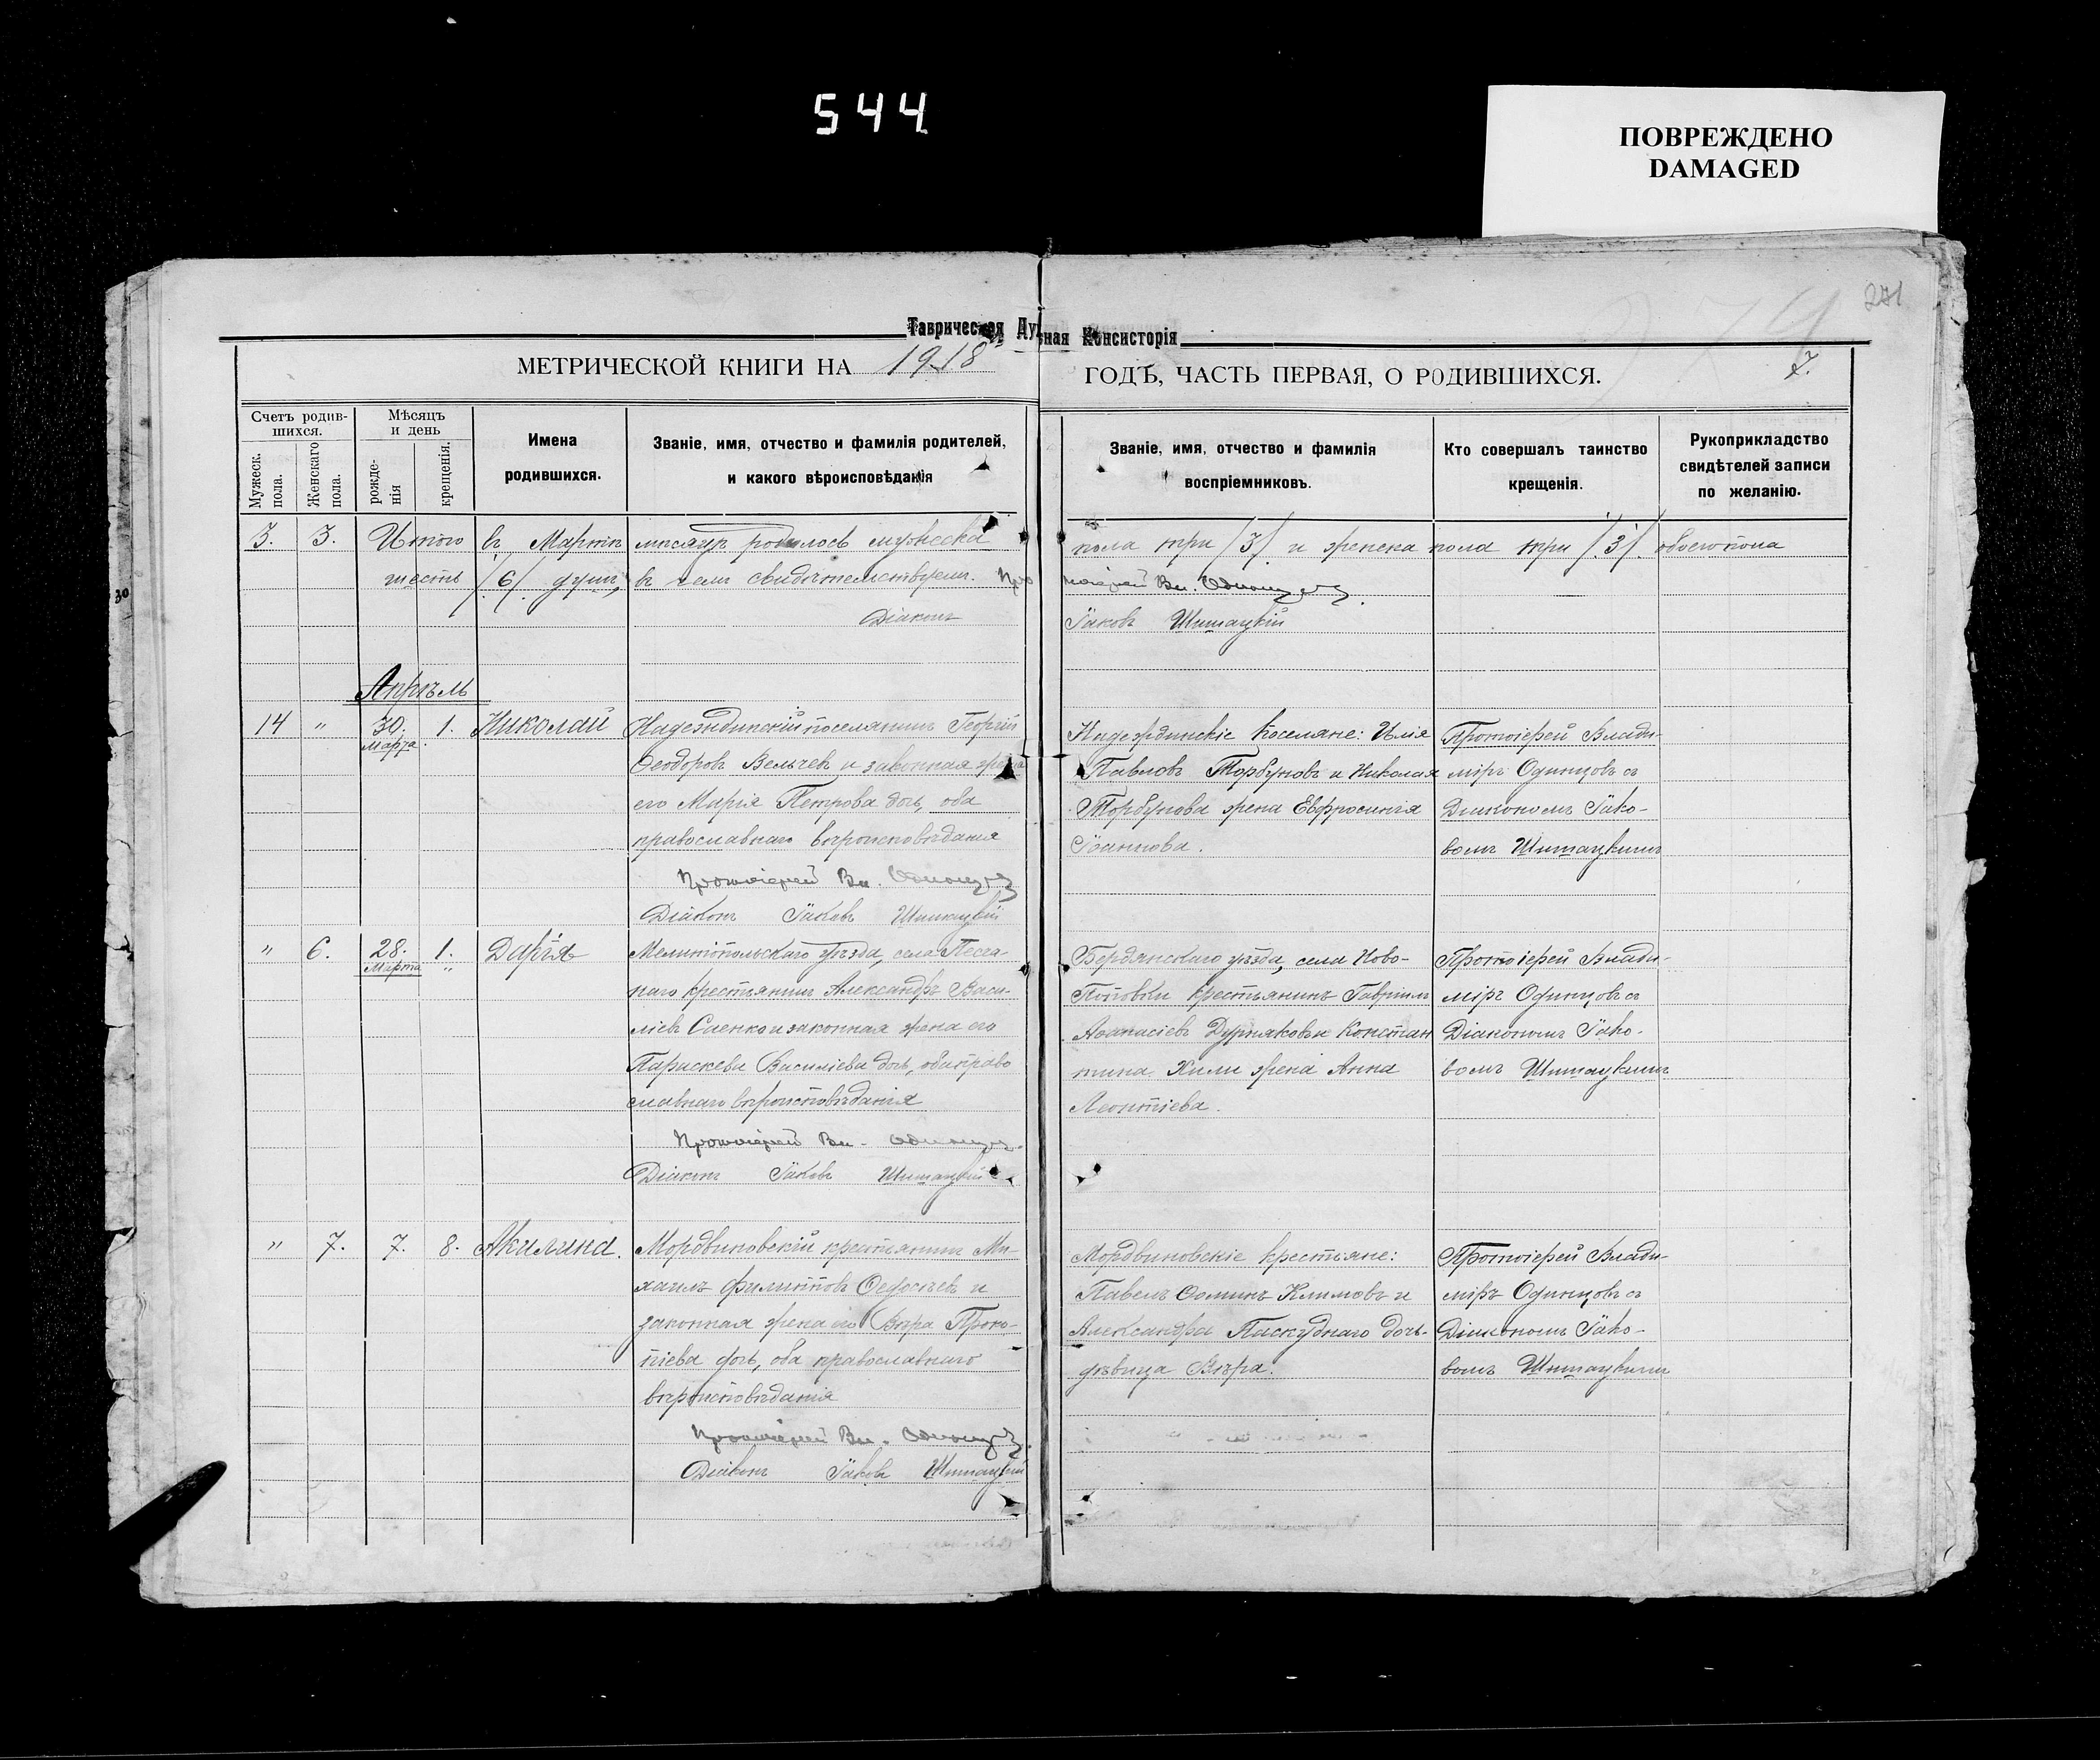 544
ПОВРЕЖДЕНО
DAMAGED
281
Таврическая Духовная Консисторія
МЕТРИЧЕСКОЙ КНИГИ НА 1918
ГОДЪ, ЧАСТЬ ПЕРВАЯ, О РОДИВШИХСЯ.
7.
Счетъ родив-
шихся.
Мужеск.
пола.
Женскаго
пола.
Мѣсяцъ
и день
рожде-
нія
крещенія.
Имена
родившихся.
Званіе, имя, отчество и фамилія родителей,
и какого вѣроисповѣданія
Званіе, имя, отчество и фамилія
воспріемниковъ.
Кто совершалъ таинство
крещенія.
Рукоприкладство
свидѣтелей записи
по желанію.
3. 3. Итого въ Мартѣ мѣсяцѣ родилось мужеска пола три /3/ и женска пола три /3/. обоего пола
шесть /6/ душъ, въ чемъ свидѣтельствуемъ. Протоіерей Вл. Одинцовъ.
Діаконъ Іаковъ Шишацкій
Апрѣль
14 " 30. Марта. 1. Николай
Надеждинскій поселянинъ Георгій
Ѳеодоровъ Вельчев и законная жена
его Марія Петрова дочь, оба
православнаго вѣроисповѣданія
Протоіерей Вл. Одинцовъ
Діаконъ Іаковъ Шишацкій
Надеждинскіе поселяне: Илія
Павловъ Торбуновъ и Николая
Торбунова жена Евфросинія
Іоаннова.
Протоіерей Влади-
міръ Одинцовъ съ
Діакономъ Іако-
вомъ Шишацкимъ
" 6. 28. Марта 1. " Дарія
Мелитопольскаго уѣзда, села Песча-
наго крестьянинъ Александръ Васи-
ліевъ Саенко и законная жена его
Параскева Василіева дочь, оба право
славнаго вѣроисповѣданія
Протоіерей Вл. Одинцовъ.
Діаконъ Іаковъ Шишацкій
Бердянскаго уѣзда, села Ново-
Поповки крестьянинъ Гавріилъ
Аѳанасіевъ Дурняковъ и Констан
тина Хили жена Анна
Леонтіева.
Протоіерей Влади-
міръ Одинцовъ съ
Діакономъ Іако-
вомъ Шишацкимъ
" 7. 7. 8. Акилина.
Мордвиновскій крестьянинъ Ми-
хаилъ Филипповъ Ѳедосѣевъ и
законная жена его Вѣра Проко-
піева дочь, оба православнаго
вѣроисповѣданія
Протоіерей Вл. Одинцовъ.
Діаконъ Іаковъ Шишацкій
Мордвиновскіе крестьяне:
Павелъ Ѳоминъ Климовъ и
Александра Паскуднаго дочь-
дѣвица Вѣра.
Протоіерей Влади-
міръ Одинцовъ съ
Діакономъ Іако-
вомъ Шишацкимъ
30